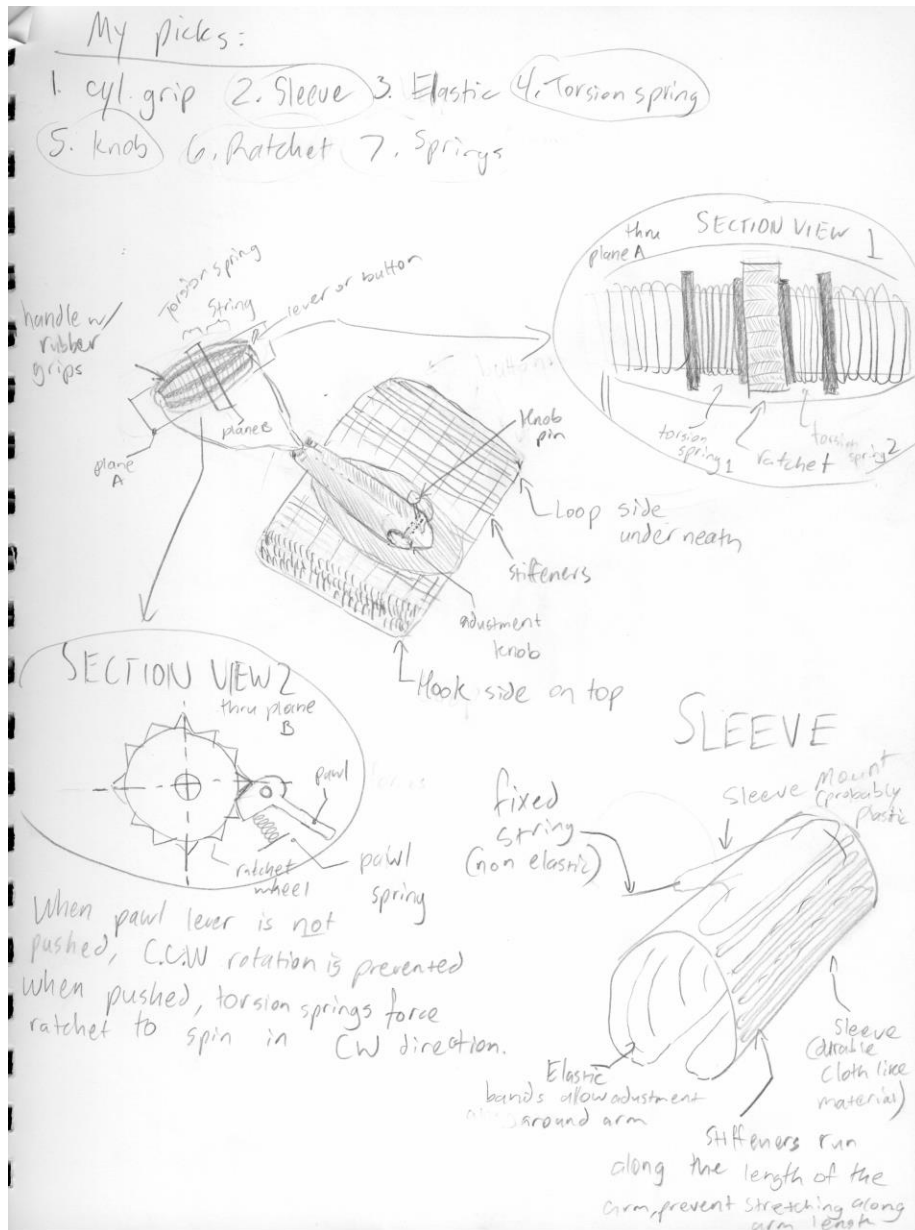 My picks:
1. cyl. grip 2. Sleeve 3. Elastic 4. Torsion spring
5. knob 6. Ratchet 7. Springs
SECTION VIEW 1
thru
plane A
torsion
spring 1
ratchet
torsion
spring 2
handle w/
rubber
grips
Torsion spring
String
lever or button
plane B
plane
A
Knob
pin
Loop side
underneath
stiffeners
adustment
knob
Hook side on top
SECTION VIEW 2
thru plane
B
pawl
ratchet
wheel
pawl
spring
When pawl lever is not
pushed, C.C.W rotation is prevented
when pushed, torsion springs force
ratchet to spin in CW direction.
SLEEVE
fixed
string
(non elastic)
Sleeve Mount
(probably
plastic
Sleeve
(durable
cloth like
material)
Elastic
bands allow adustment
around arm
Stiffeners run
along the length of the
arm, prevent stretching along
arm length